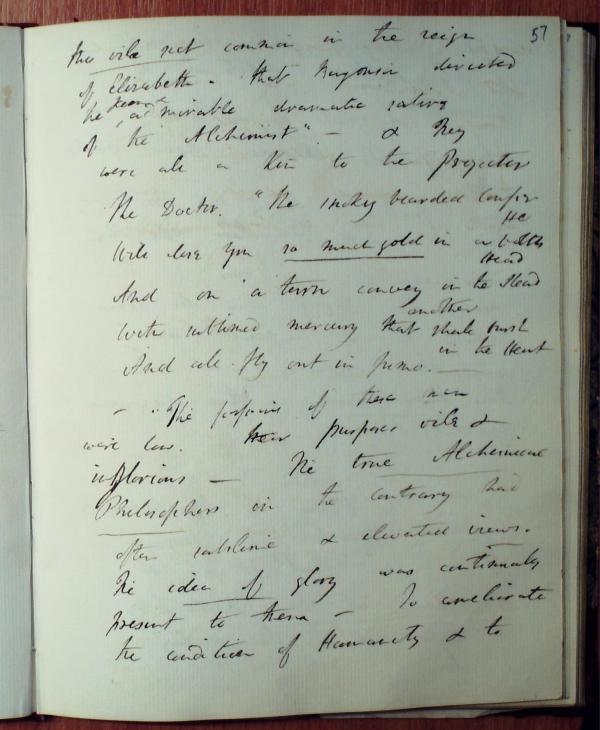 57
this vile set common in the reign
of Elizabeth. that directed
he admirable dramatic satire
of the "Alchemist" – & they
were all a Kin to the Projector
The Doctor. "The smoky bearded
He
Will lose you so much gold in a bolts
Head
And on a turn convey in the Stead
another
With sublimed mercury that shall burst
in the Heat
And all fly out in fumo. –
– "The of these men
were low. purposes vile &
inglorious – The true Alchemical
Philosophers on the contrary had
often sublime & elevated views.
The idea of glory was continually
present to them – To ameliorate
the condition of Humanity & to